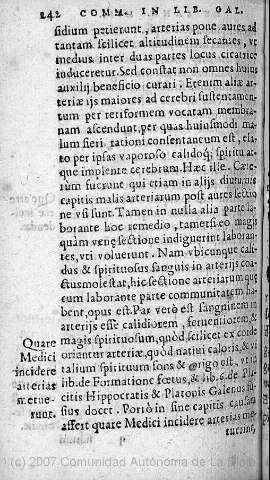 242 COMM. IN LIB. GAL.
sidium petierunt, arterias pone aures ad
tantam scilicet altitudinem secantes, vt
medius inter duas partes locus cicatrice
induceretur. Sed constat non omnes huius
auxilij beneficio curari. Etenim aliæ ar-
teriæ ijs maiores ad cerebri sustentamen-
tum per retiformem vocatam membra-
nam ascendunt, per quas huiusmodi ma-
lum fieri rationi consentaneum est, 
to per ipsas vaporoso calidoq; spiritu at-
que implente cerebrum. Hæc ille. Cæte-
rum fuerunt qui etiam in alijs diuturnis
capitis malis arteriarum post aures sectio
ne vsi sunt. Tamen in nulla alia parte la-
borante hoc remedio, tametsi eo magis
quàm venæ sectione indiguerint laboran-
tes, vti voluerunt. Nam vbicunque cali-
dus & spirituosus sanguis in arterijs con-
ctus molestat, hic sectione arteriarum quæ
cum laborante parte communitatem ha-
bent, opus est. Par verò est sanguinem in
arterijs esse calidiorem, feruentiorem &
magis spirituosum, quòd scilicet ex corde
oriantur arteriæ, quòd natiui caloris & vi
talium spirituum fons & origo est, vti
lib. de Formatione fœtus, & lib. 6. de Pla-
citis Hippocratis & Platonis Galenus fu-
sius docet. Porrò in fine capitis causam
affert quare Medici incidere arterias me-
tuerint,
Quare
Medici
incidere
arterias
metue-
runt.
(c) 2007 Comunidad Autónoma de La Rioja